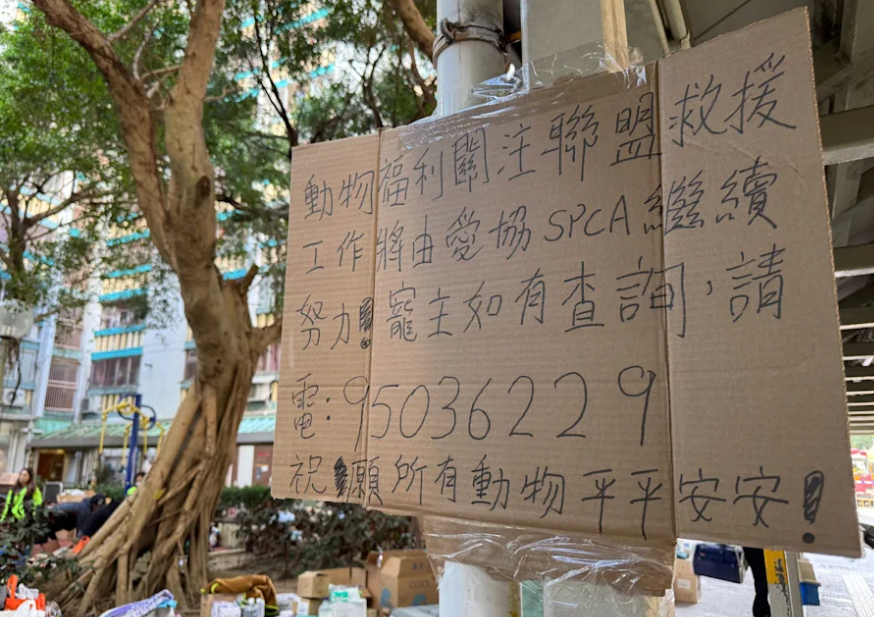 動物福利關注聯盟救援
工作將由愛協SPCA繼續
努力!寵主如有查詢,請
電:95036229
祝願所有動物平平安安!